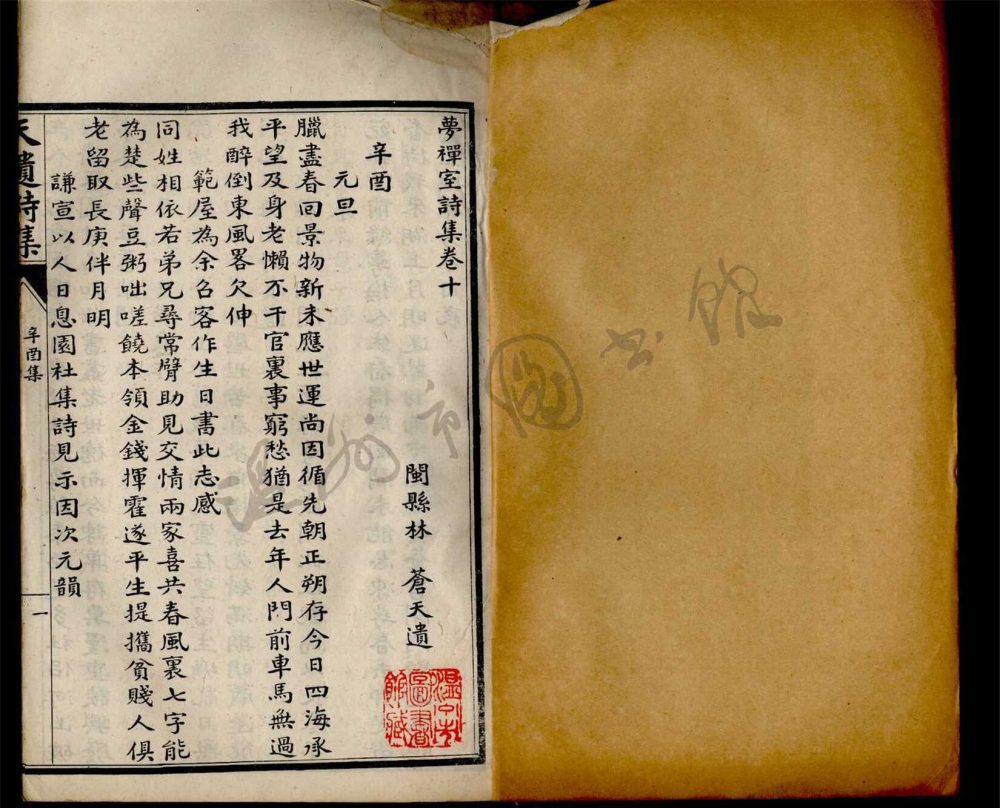 夢禪室詩集卷十
閩縣林 蒼天遺
辛酉
元旦
臘盡春回景物新未應世運尚因循先朝正朔存今日四海承
平望及身老懶不干官裏事窮愁猶是去年人門前車馬無過
我醉倒東風畧欠伸
範屋為余召客作生日書此志感
同姓相依若弟兄尋常臂助見交情兩家喜共春風裏七字能
為楚些聲豆粥咄嗟饒本領金錢揮霍遂平生提攜貧賤人俱
老留取長庚伴月明
謙宣以人日息園社集詩見示因次元韻
天遺詩集
辛酉集
一
溫州市圖書館藏
溫州市圖書館